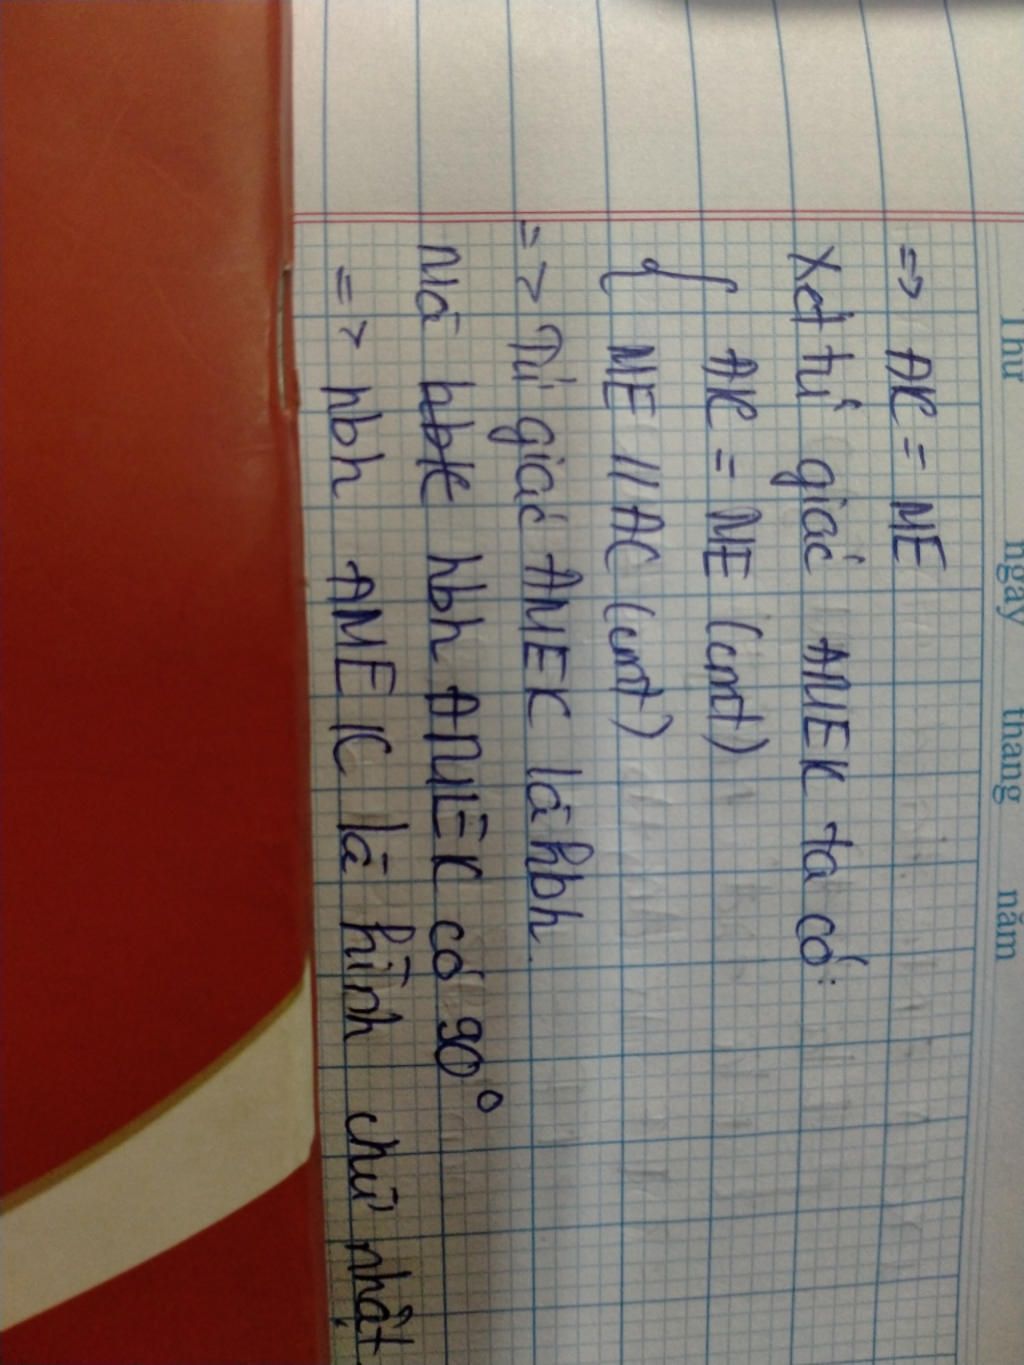 Thứ ngày tháng năm
=> AK = ME
Xét tứ giác AMEK ta có:
AK = ME (cmt)
ME // AC (cmt)
=> Tứ giác AMEK là hbh.
mà hbh AMEK có 90°
=> hbh AMEK là hình chữ nhật